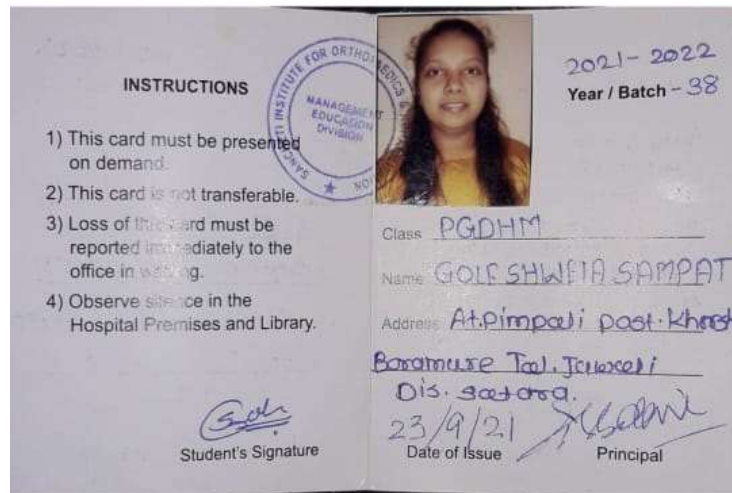 INSTRUCTIONS
1) This card must be presented
on demand.
2) This card is not transferable.
3) Loss of this card must be
reported immediately to the
office in writing.
4) Observe silence in the
Hospital Premises and Library.
Student's Signature
SANCHETI INSTITUTE FOR ORTHOPAEDICS &
MANAGEMENT
EDUCATION
DIVISION
2021-2022
Year / Batch - 38
Class PGDHM
Name GOLE SHWETA SAMPAT
Address At.Pimpali post.
Tal.
Dis. satara.
23/9/21
Date of Issue
Principal